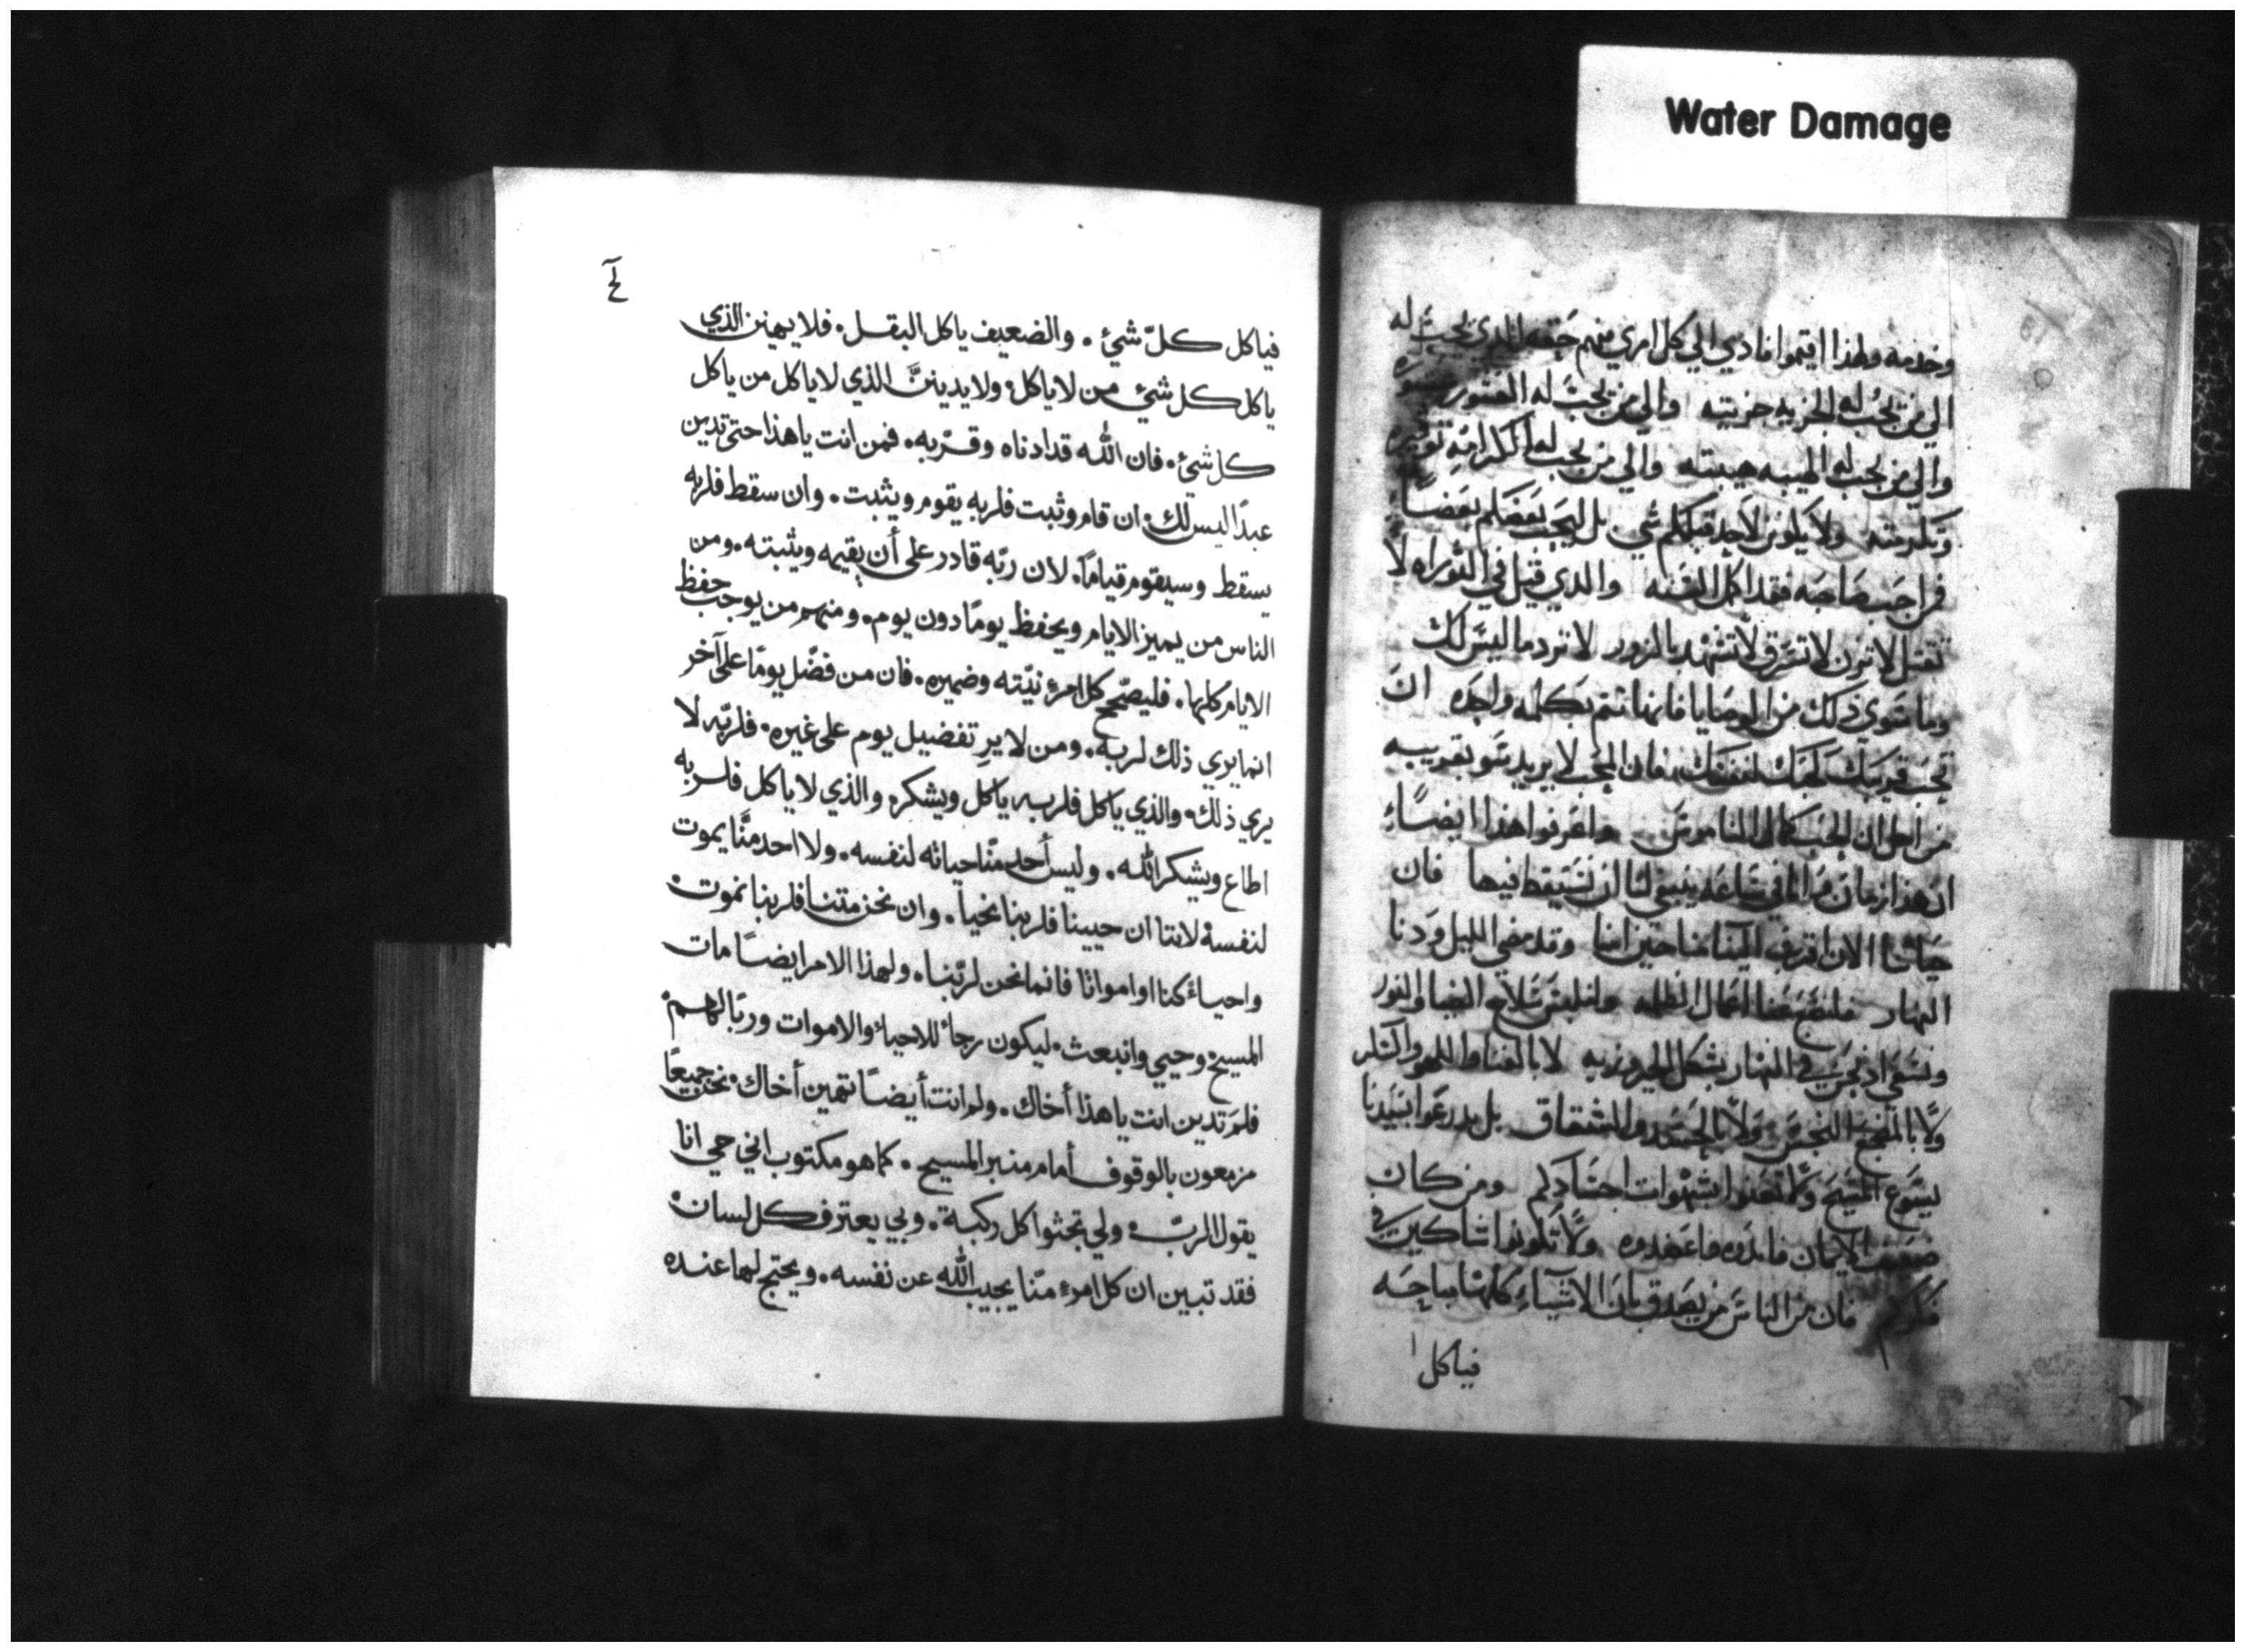 Water Damage
وخدمه ولهذا اقيموا فادي الي كل امري منهم حقه الذي يجب له
الي من تجب له الجزيه جزيته والي من يجب له العشور
والي من يجب له الهيبه هيبته والي من يجب له الكرامه
ولا يكون لاحد قبلكم شي بل ليحب بعضكم بعضاً
فمن احب صاحبه فقد اكمل السنه والذي قيل في التوراه لا
تقتل لا تزن لا تسرق لا تشهد بالزور لا ترد ما ليس لك
وما سوي ذلك من الوصايا فانها تتم بكلمه واحده ان
تحب قريبك كحبك لنفسك فان المحب لا يريد سو بقريبه
من اجل ان الحب كمال الناموس واعرفوا هذا ايضاً
ان هذا زمان من اتي ساعه ينبغي لنا ان نستيقظ فيها فان
حياتنا الان اقرب الينا منا حين امنا وقد مضي الليل ودنا
النهار فلنضع عنا اعمال الظلمه ولنلبس سلاح الضيا والنور
في النهار بشكل الحير لا بالغنا واللهو والسكر
ولا بالمضجع النجس ولا بالحسد والشقاق بل تدرعوا بسيدنا
يسوع المسيح ولا تعنوا بشهوات اجسادكم ومن كان
ضعيف الايمان واعضدوه ولا تكونوا شاكين في
فان من الناس من يصدق بان الاشياء كلها مباحه
فياكل
فياكل كلّ شيئ ۰ والضعيف ياكل البقل ۰ فلا يهينن الذي
ياكل كل شيئ من لا ياكل ۰ ولا يدينن الذي لا ياكل من ياكل
كل شيئ ۰ فان الله قد ادناه وقرّبه ۰ فمن انت يا هذا حتى تدين
عبدًا ليس لك ۰ ان قام وثبت فلربه يقوم ويثبت ۰ وان سقط فلربه
يسقط وسيقوم قيامًا ۰ لان ربّه قادر على أن يقيمه ويثبته ۰ ومن
الناس من يميز الايام ويحفظ يومًا دون يوم ۰ ومنهم من يوجب حفظ
الايام كلها ۰ فليصّحح كل امرء نيّته وضميره ۰ فان من فضّل يومًا على آخر
انما يري ذلك لربه ۰ ومن لا يرِ تفضيل يوم على غيره ۰ فلربّه لا
يري ذلك ۰ والذي ياكل فلربه ياكل ويشكره والذي لا ياكل فلربه
اطاع ويشكر الله ۰ وليس أحد منّا حياته لنفسه ۰ ولا احد منّا يموت
لنفسه ۰ لاننا ان حيينا فلربنا نحيا ۰ وان نحن متنا فلربنا نموت ۰
واحياءً كنا او امواتًا فانما نحن لربّنا ۰ ولهذا الامر ايضًا مات
المسيح وحيي وانبعث ۰ ليكون رجاءً للاحياء والاموات وربًا لهم ۰
فلمَ تدين انت يا هذا أخاك ۰ ولم انت أيضًا تهين أخاك ۰ نحن جميعًا
مزمعون بالوقوف أمام منبر المسيح ۰ كما هو مكتوب اني حي انا
يقول الربّ ۰ ولي تجثوا كل ركبة ۰ وبي يعترف كل لسان ۰
فقد تبين ان كل امرء منّا يجيب الله عن نفسه ۰ ويحتج لها عنده